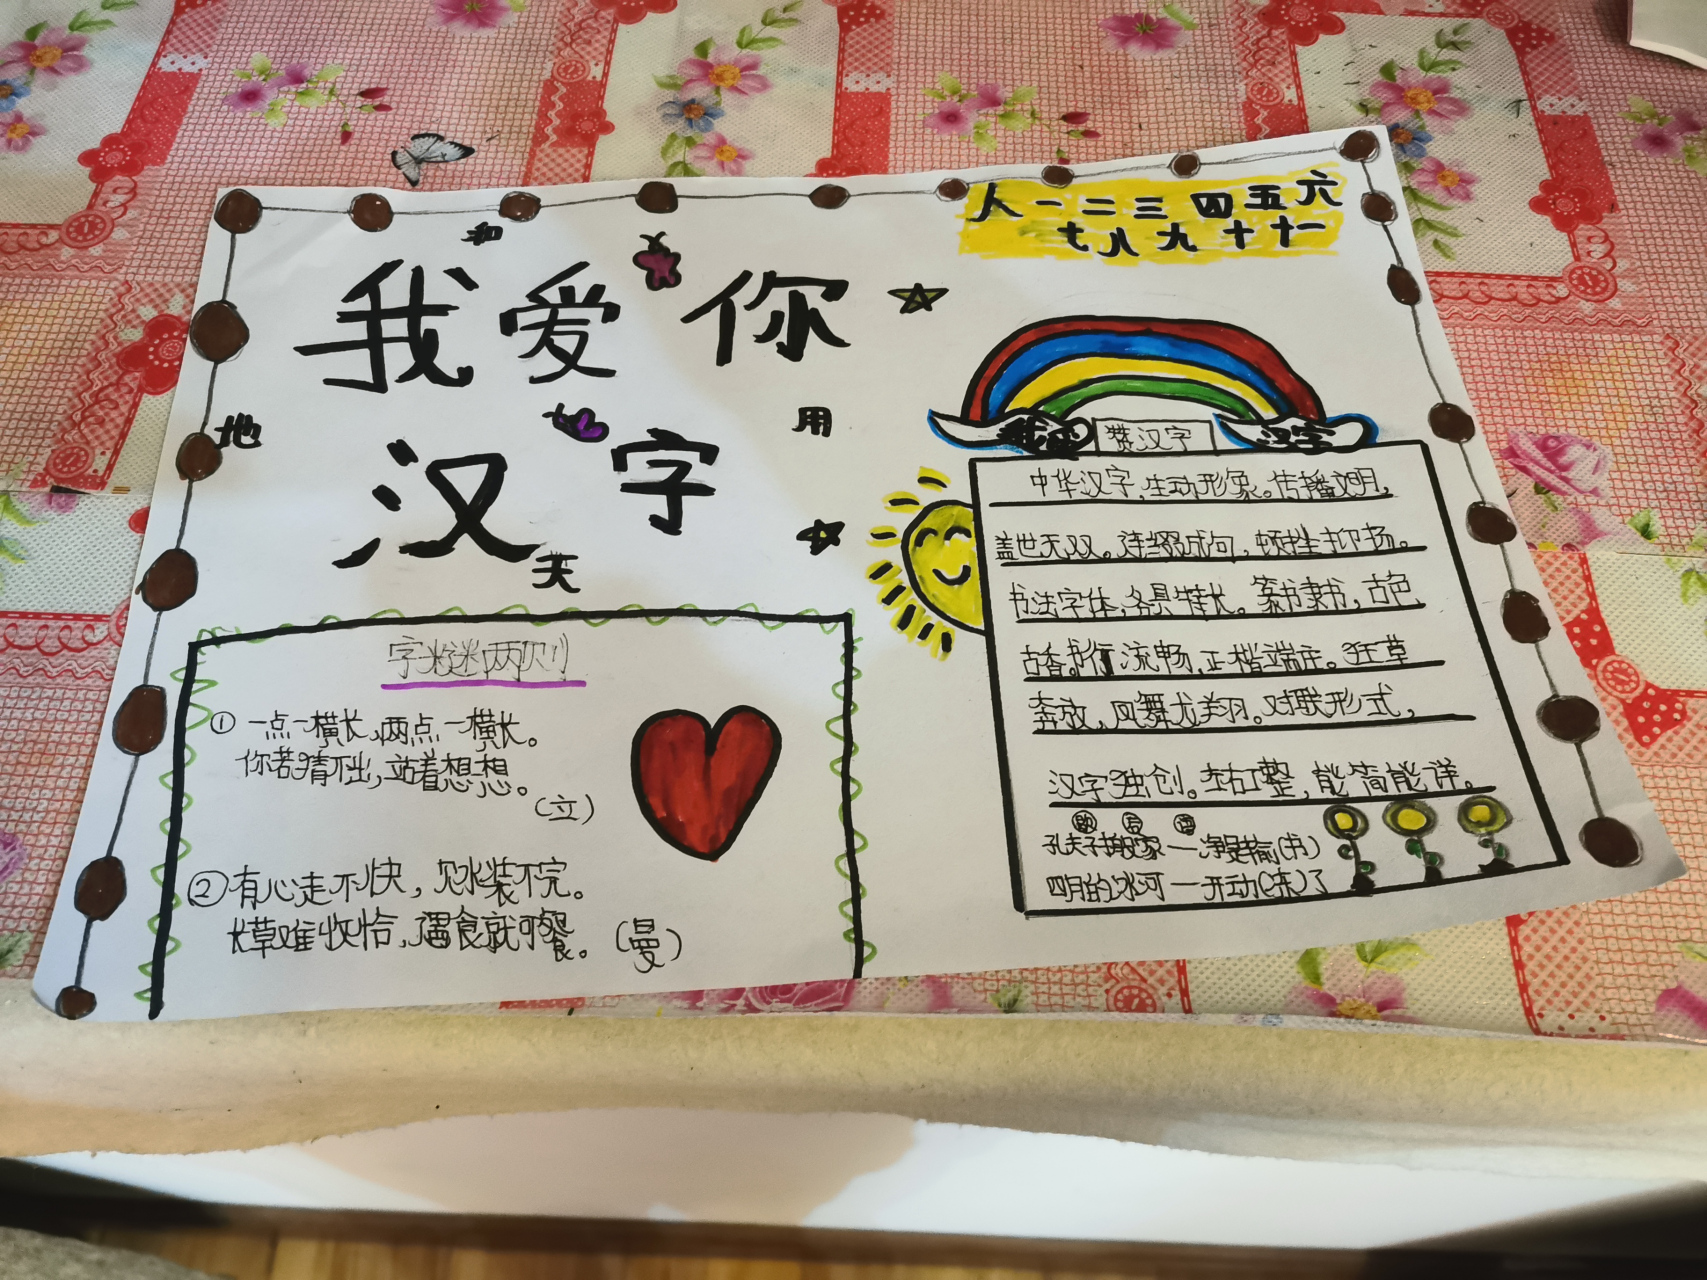 人一二三四五六
七八九十十一
和
我爱你
地
用
汉字
天
赞汉字
汉字
中华汉字,生动形象。传播文明,
盖世无双。连缀成句,顿挫抑扬。
书法字体,各具特长。篆书隶书,古色
古香。行书流畅,正楷端庄。狂草
奔放,凤舞龙翔。对联形式,
汉字独创。左右工整,能简能详。
歇后语
孔夫子搬家—净是输(书)
四月的冰河—开动(冻)了
字谜两则
①一点一横长,两点一横长。
你若猜不出,站着想一想。
(立)
②有心走不快,见水装不完。
长草难收恰,遇食就可餐。(曼)